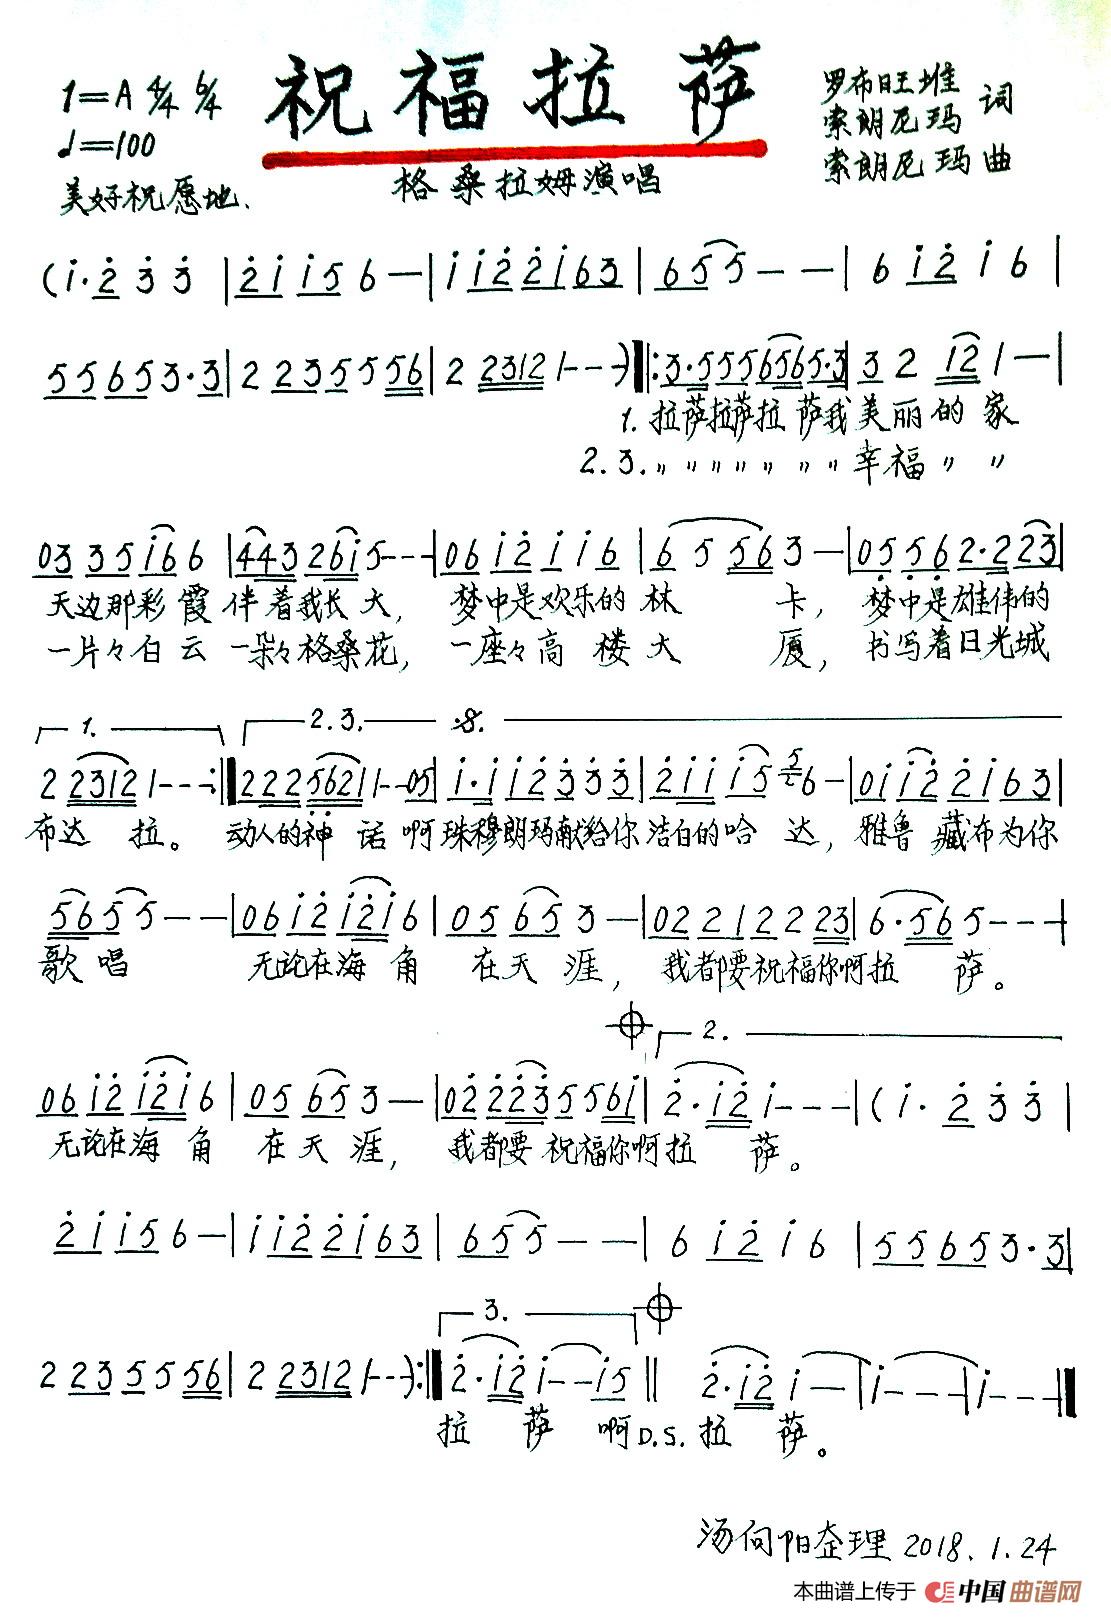 祝福拉萨
1=A 4/4 6/4
♩=100
美好祝愿地.
格桑拉姆演唱
罗布旺堆
索朗尼玛 词
索朗尼玛 曲
(i·2 3 3 | 2 i i 5 6 — | i i 2 2 i 6 3 | 6 5 5 — — | 6 i 2 i 6 |
5 5 6 5 3·3 | 2 2 3 5 5 5 5 6 | 2 2 3 1 2 1 - - -) ‖: 3·5 5 5 6 5 6 5·3 | 3 2 1 2 1 — |
1. 拉萨拉萨拉 萨我美丽的家
2.3. 〃〃〃〃〃〃〃幸福〃〃
0 3 3 5 i 6 6 | 4 4 3 2 6 i 5 - - - | 0 6 i 2 i i 6 | 6 5 5 6 3 — | 0 5 5 6 2·2 2 3 |
天边那彩霞伴着我长大, 梦中是欢乐的林 卡, 梦中是雄伟的
一片々白云一朵々格桑花, 一座々高楼大 厦, 书写着日光城
1. 2.3. 𝄋
2 2 3 1 2 1 - - - :‖ 2 2 2 5 6 2 1 1 - - 0 5 | i·i i 2 3 3 3 | 2 i i i 5 6 — | 0 i i 2 2 i 6 3 |
布达 拉。 动人的神 话 啊珠穆朗玛献给你洁白的哈 达, 雅鲁藏布为你
5 6 5 5 — — | 0 6 i 2 i 2 i 6 | 0 5 6 5 3 — | 0 2 2 1 2 2 2 3 | 6·5 6 5 - - - |
歌唱 无论在海 角 在天涯, 我都要祝福你啊拉 萨。
2.
0 6 i 2 i 2 i 6 | 0 5 6 5 3 — | 0 2 2 2 3 5 5 6 i | 2·i 2 i - - - | (i· 2 3 3 |
无论在海 角 在天涯, 我都要祝福你啊拉 萨。
2 i i 5 6 — | i i 2 2 i 6 3 | 6 5 5 — — | 6 i 2 i 6 | 5 5 6 5 3·3 |
3.
2 2 3 5 5 5 5 6 | 2 2 3 1 2 1 - - -) :‖ 2·i 2 i - - i 5 ‖ 2·i 2 i — | i - - - | i - - - ‖
拉 萨 啊D.S.拉 萨。
汤向阳整理 2018.1.24
本曲谱上传于 中国曲谱网